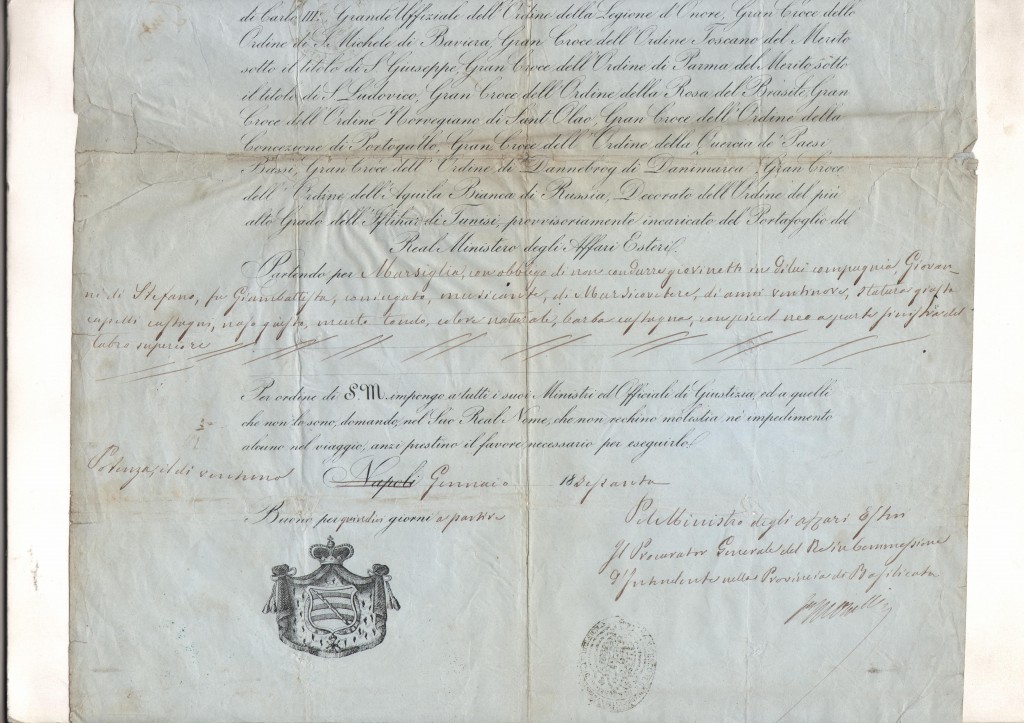 di Carlo III.º, Grande Uffiziale dell'Ordine della Legione d'Onore, Gran Croce dello
Ordine di S. Michele di Baviera, Gran Croce dell'Ordine Toscano del Merito
sotto il titolo di S. Giuseppe, Gran Croce dell'Ordine di Parma del Merito, sotto
il titolo di S. Ludovico, Gran Croce dell'Ordine della Rosa del Brasile, Gran
Croce dell'Ordine Norvegiano di Sant'Olao, Gran Croce dell'Ordine della
Concezione di Portogallo, Gran Croce dell'Ordine della Quercia de' Paesi
Bassi, Gran Croce dell'Ordine di Dannebrog di Danimarca, Gran Croce
dell'Ordine dell'Aquila Bianca di Russia, Decorato dell'Ordine del più
alto Grado dell'Iftihar di Tunisi, provvisoriamente incaricato del Portafoglio del
Real Ministero degli Affari Esteri.
Partendo per Marsiglia, con obbligo di non condurre giovinetti in di lui compagnia, Giovan-
ni di Stefano, fu Giambattista, coniugato, musicante, di Marsicovetere, di anni ventinove, statura giusta
capelli castagni, naso giusto, mento tondo, colore naturale, barba castagna, con piccol neo a parte sinistra del
labro superiore
Per ordine di S. M. impongo a tutti i suoi Ministri ed Officiali di Giustizia, ed a quelli
che non lo sono, domando, nel Suo Real Nome, che non rechino molestia, nè impedimento
alcuno nel viaggio, anzi prestino il favore necessario per eseguirlo.
Potenza, il dì ventuno Napoli Gennaio 18sessanta
Buono per quindici giorni a partire
Pel Ministro degli affari Esteri
Il Procurator Generale del Re in Commessione
d'Intendente nella Provincia di Basilicata